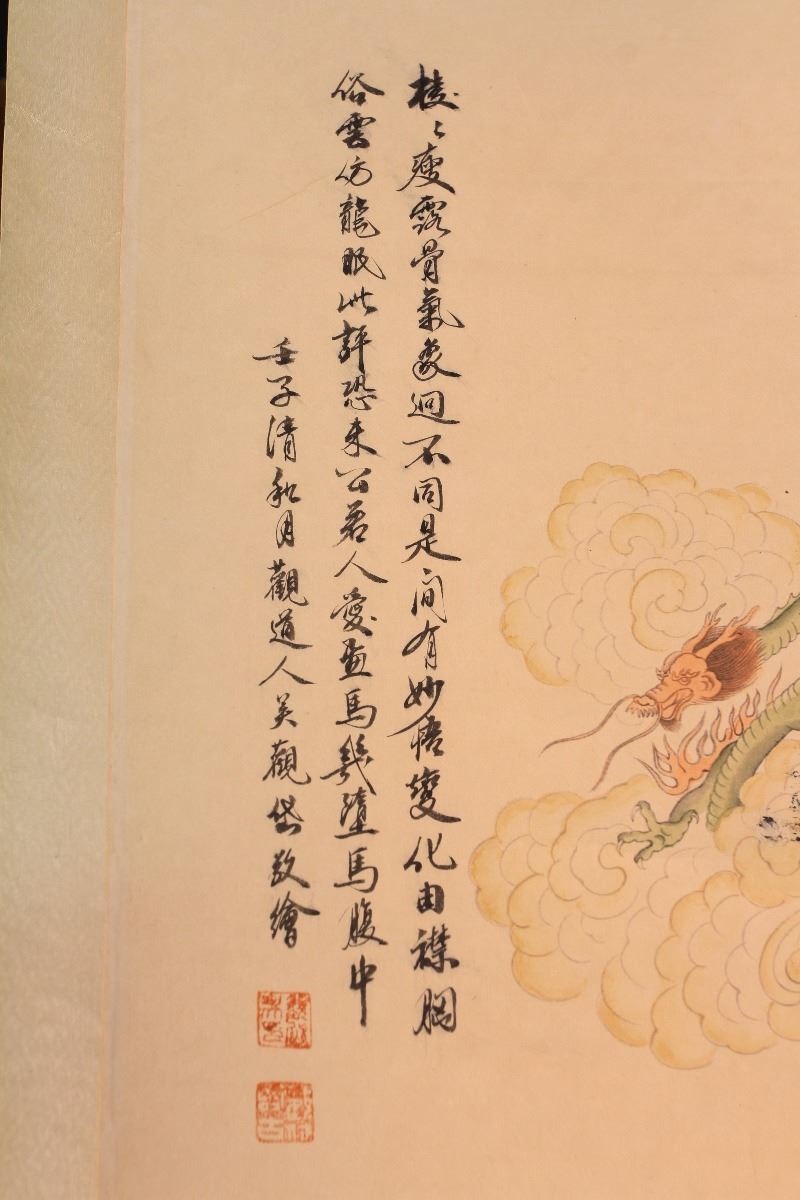 棱〻瘦露骨氣象迥不同是間有妙悟變化由襟胸
俗雲仿龍眠此評恐未公若人愛畫馬幾墮馬腹中
壬子清和月觀道人吳觀岱敬繪